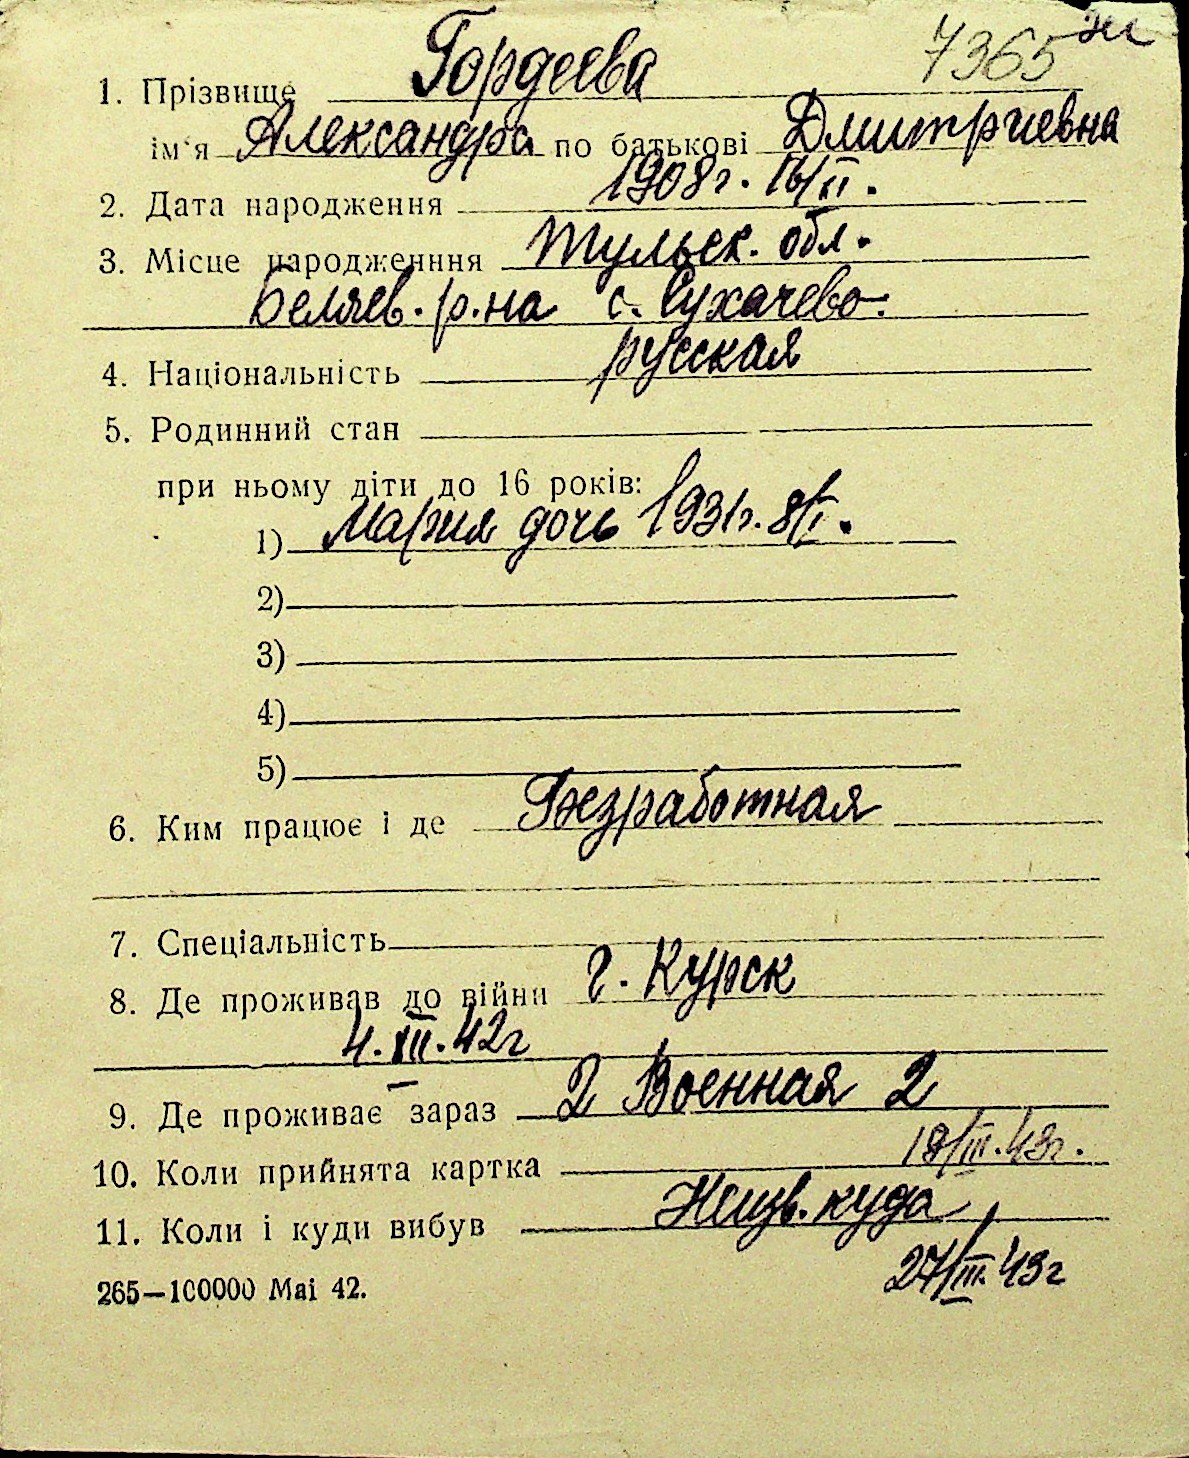 7365
1. Прізвище Гордеева
ім'я Александра по батькові Дмитриевна
2. Дата народження 1908г. 16/II.
3. Місце народженння Тульск. обл.
Беляев. р-на с. Сухачево.
4. Національність русская
5. Родинний стан
при ньому діти до 16 років:
1) Мария дочь 1931г. 8/I.
2)
3)
4)
5)
6. Ким працює і де Безработная
7. Спеціальність
8. Де проживав до війни г. Курск
4. III. 42г
9. Де проживає зараз 2 Военная 2
10. Коли прийнята картка 18/III. 43г.
11. Коли і куди вибув Неизв. куда
27/III. 43г
265—100000 Mai 42.